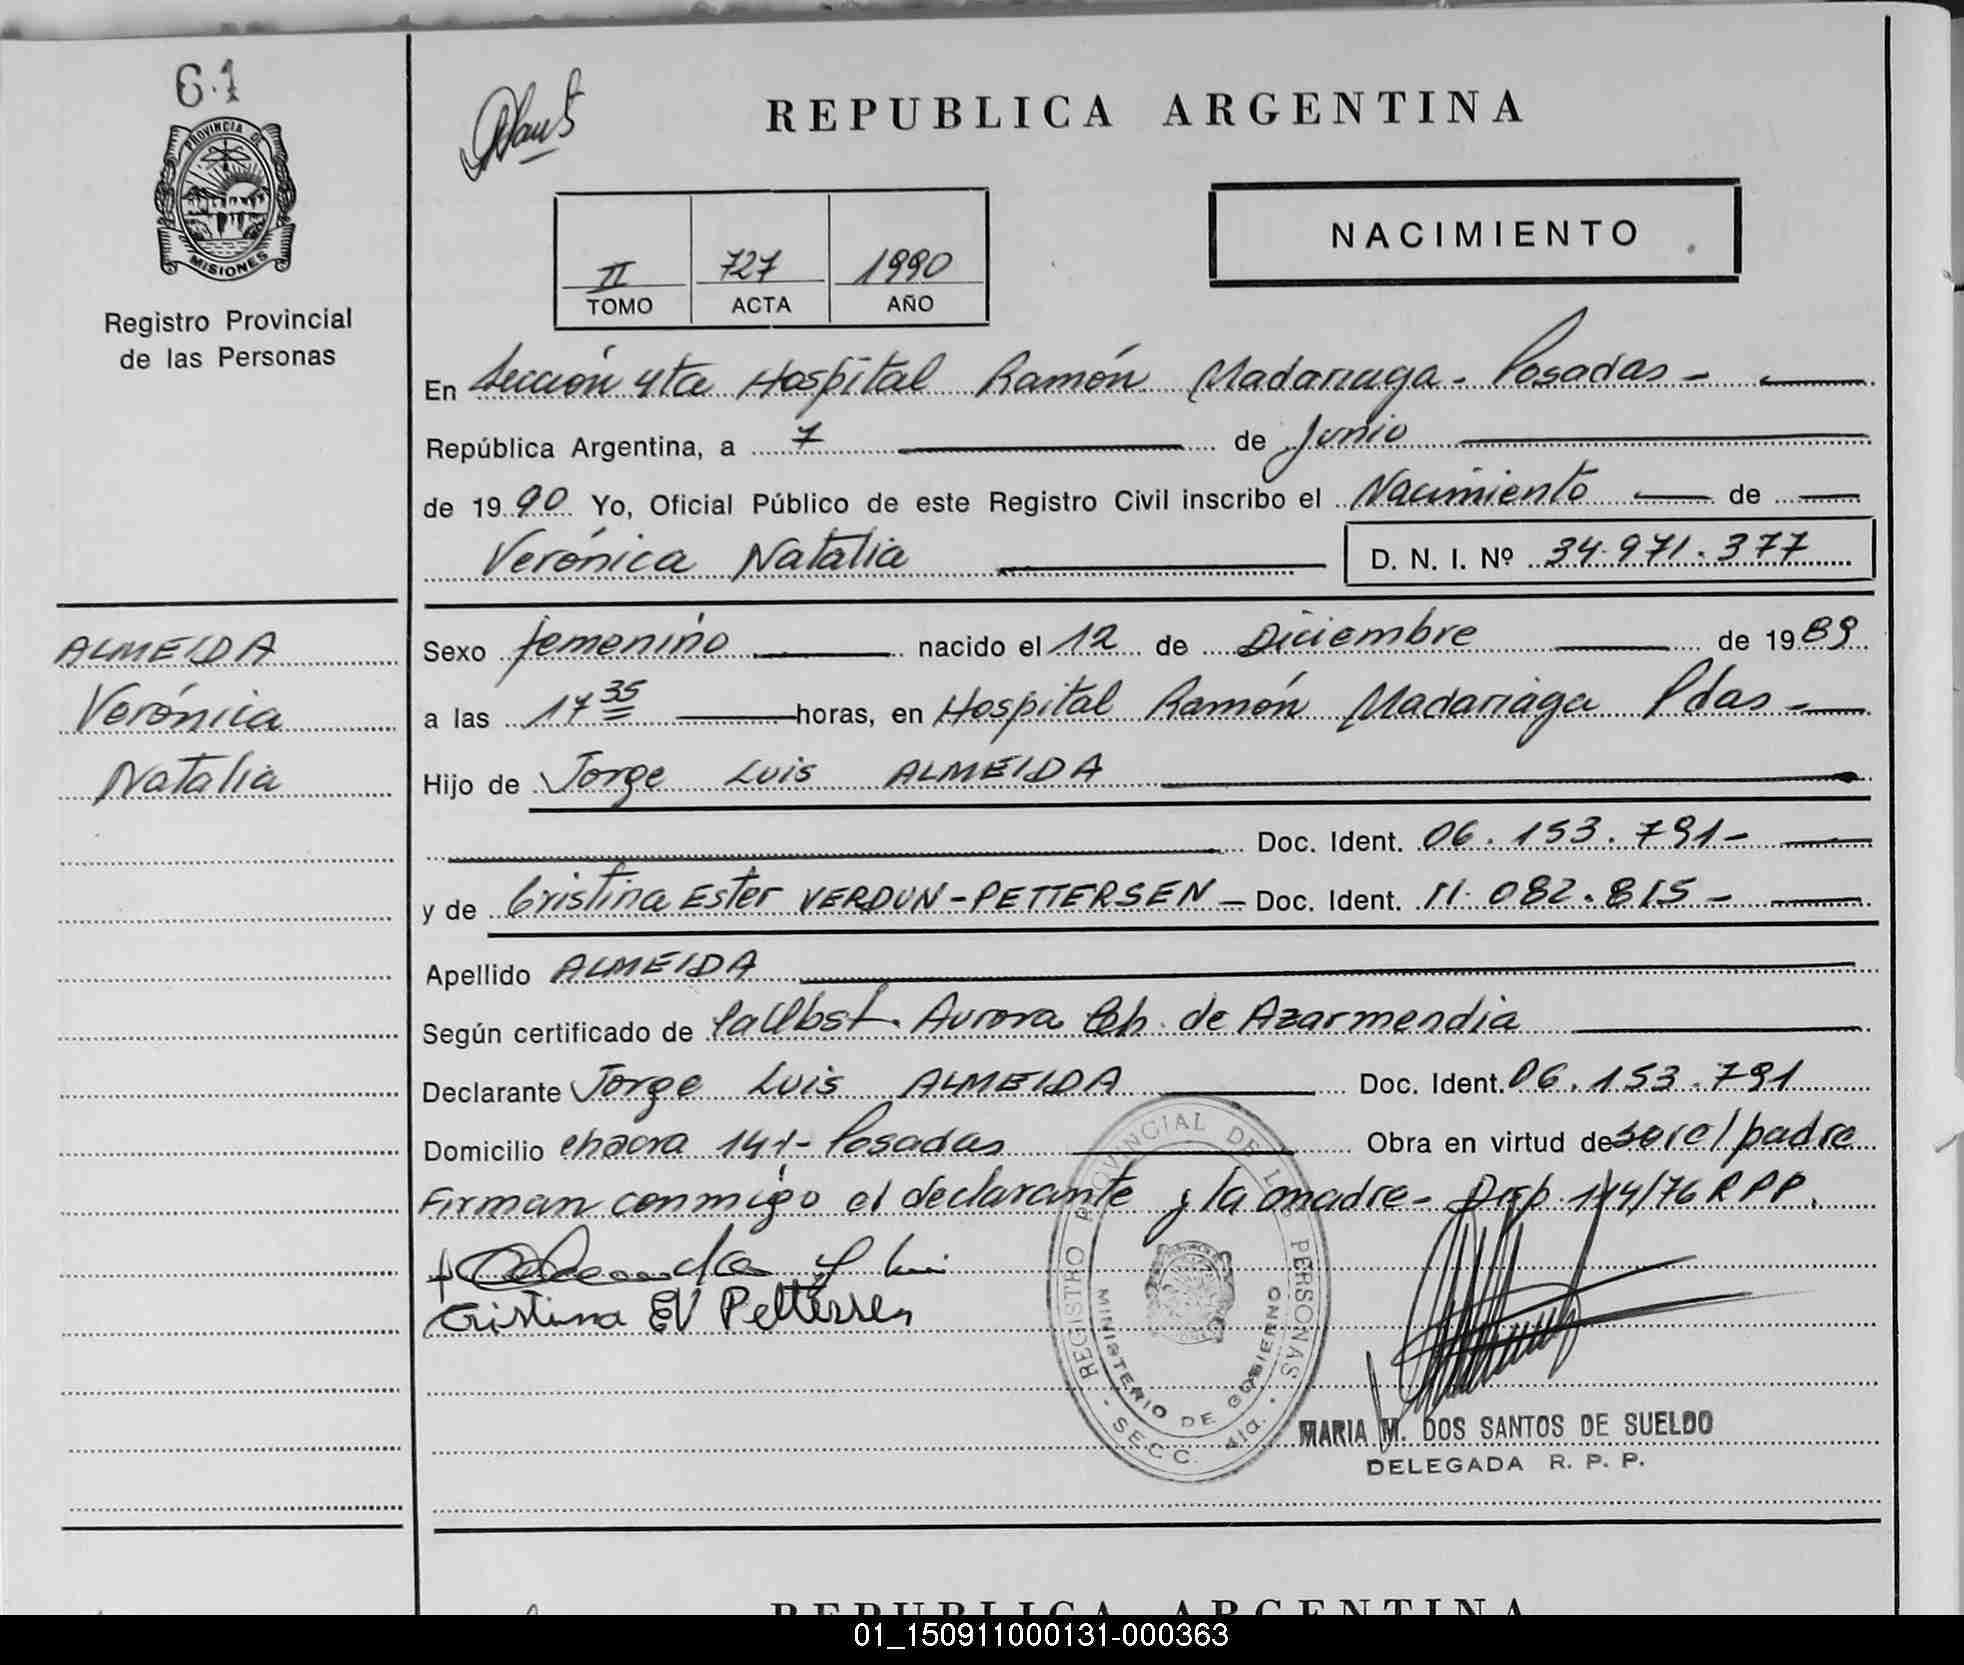 61
PROVINCIA DE
MISIONES
Registro Provincial
de las Personas
REPUBLICA ARGENTINA
II 727 1990
TOMO ACTA AÑO
NACIMIENTO
En Sección 4ta Hospital Ramón Madariaga - Posadas -
República Argentina, a 7 de Junio
de 1990 Yo, Oficial Público de este Registro Civil inscribo el Nacimiento de
Verónica Natalia D. N. I. Nº 34.971.377
ALMEIDA
Verónica
Natalia
Sexo femenino nacido el 12 de Diciembre de 1989
a las 17 35 horas, en Hospital Ramón Madariaga Pdas -
Hijo de Jorge Luis ALMEIDA
Doc. Ident. 06.153.791 -
y de Cristina Ester VERDUN - PETTERSEN - Doc. Ident. 11.082.815 -
Apellido ALMEIDA
Según certificado de Aurora Ch. de Azarmendia
Declarante Jorge Luis ALMEIDA Doc. Ident. 06.153.791
Domicilio chacra 141 - Posadas Obra en virtud de ser el padre
Firman conmigo el declarante y la madre - Disp. 114/76 R P P.
Cristina EV Pettersen
REGISTRO PROVINCIAL DE LAS PERSONAS
MINISTERIO DE GOBIERNO
- SECC. 4ta. -
MARIA M. DOS SANTOS DE SUELDO
DELEGADA R. P. P.
REPUBLICA ARGENTINA
01_150911000131-000363